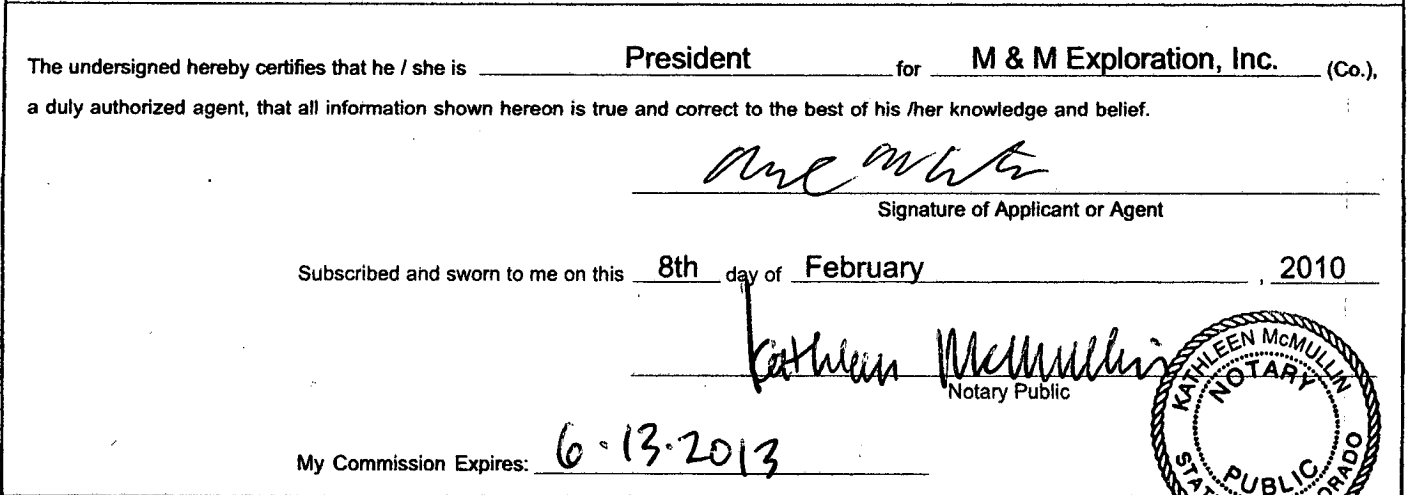 The undersigned hereby certifies that he / she is President for M & M Exploration, Inc. (Co.),
a duly authorized agent, that all information shown hereon is true and correct to the best of his /her knowledge and belief.
Signature of Applicant or Agent
Subscribed and sworn to me on this 8th day of February , 2010
Kathleen McMullin
Notary Public
My Commission Expires: 6.13.2013
KATHLEEN McMULLIN
NOTARY
PUBLIC